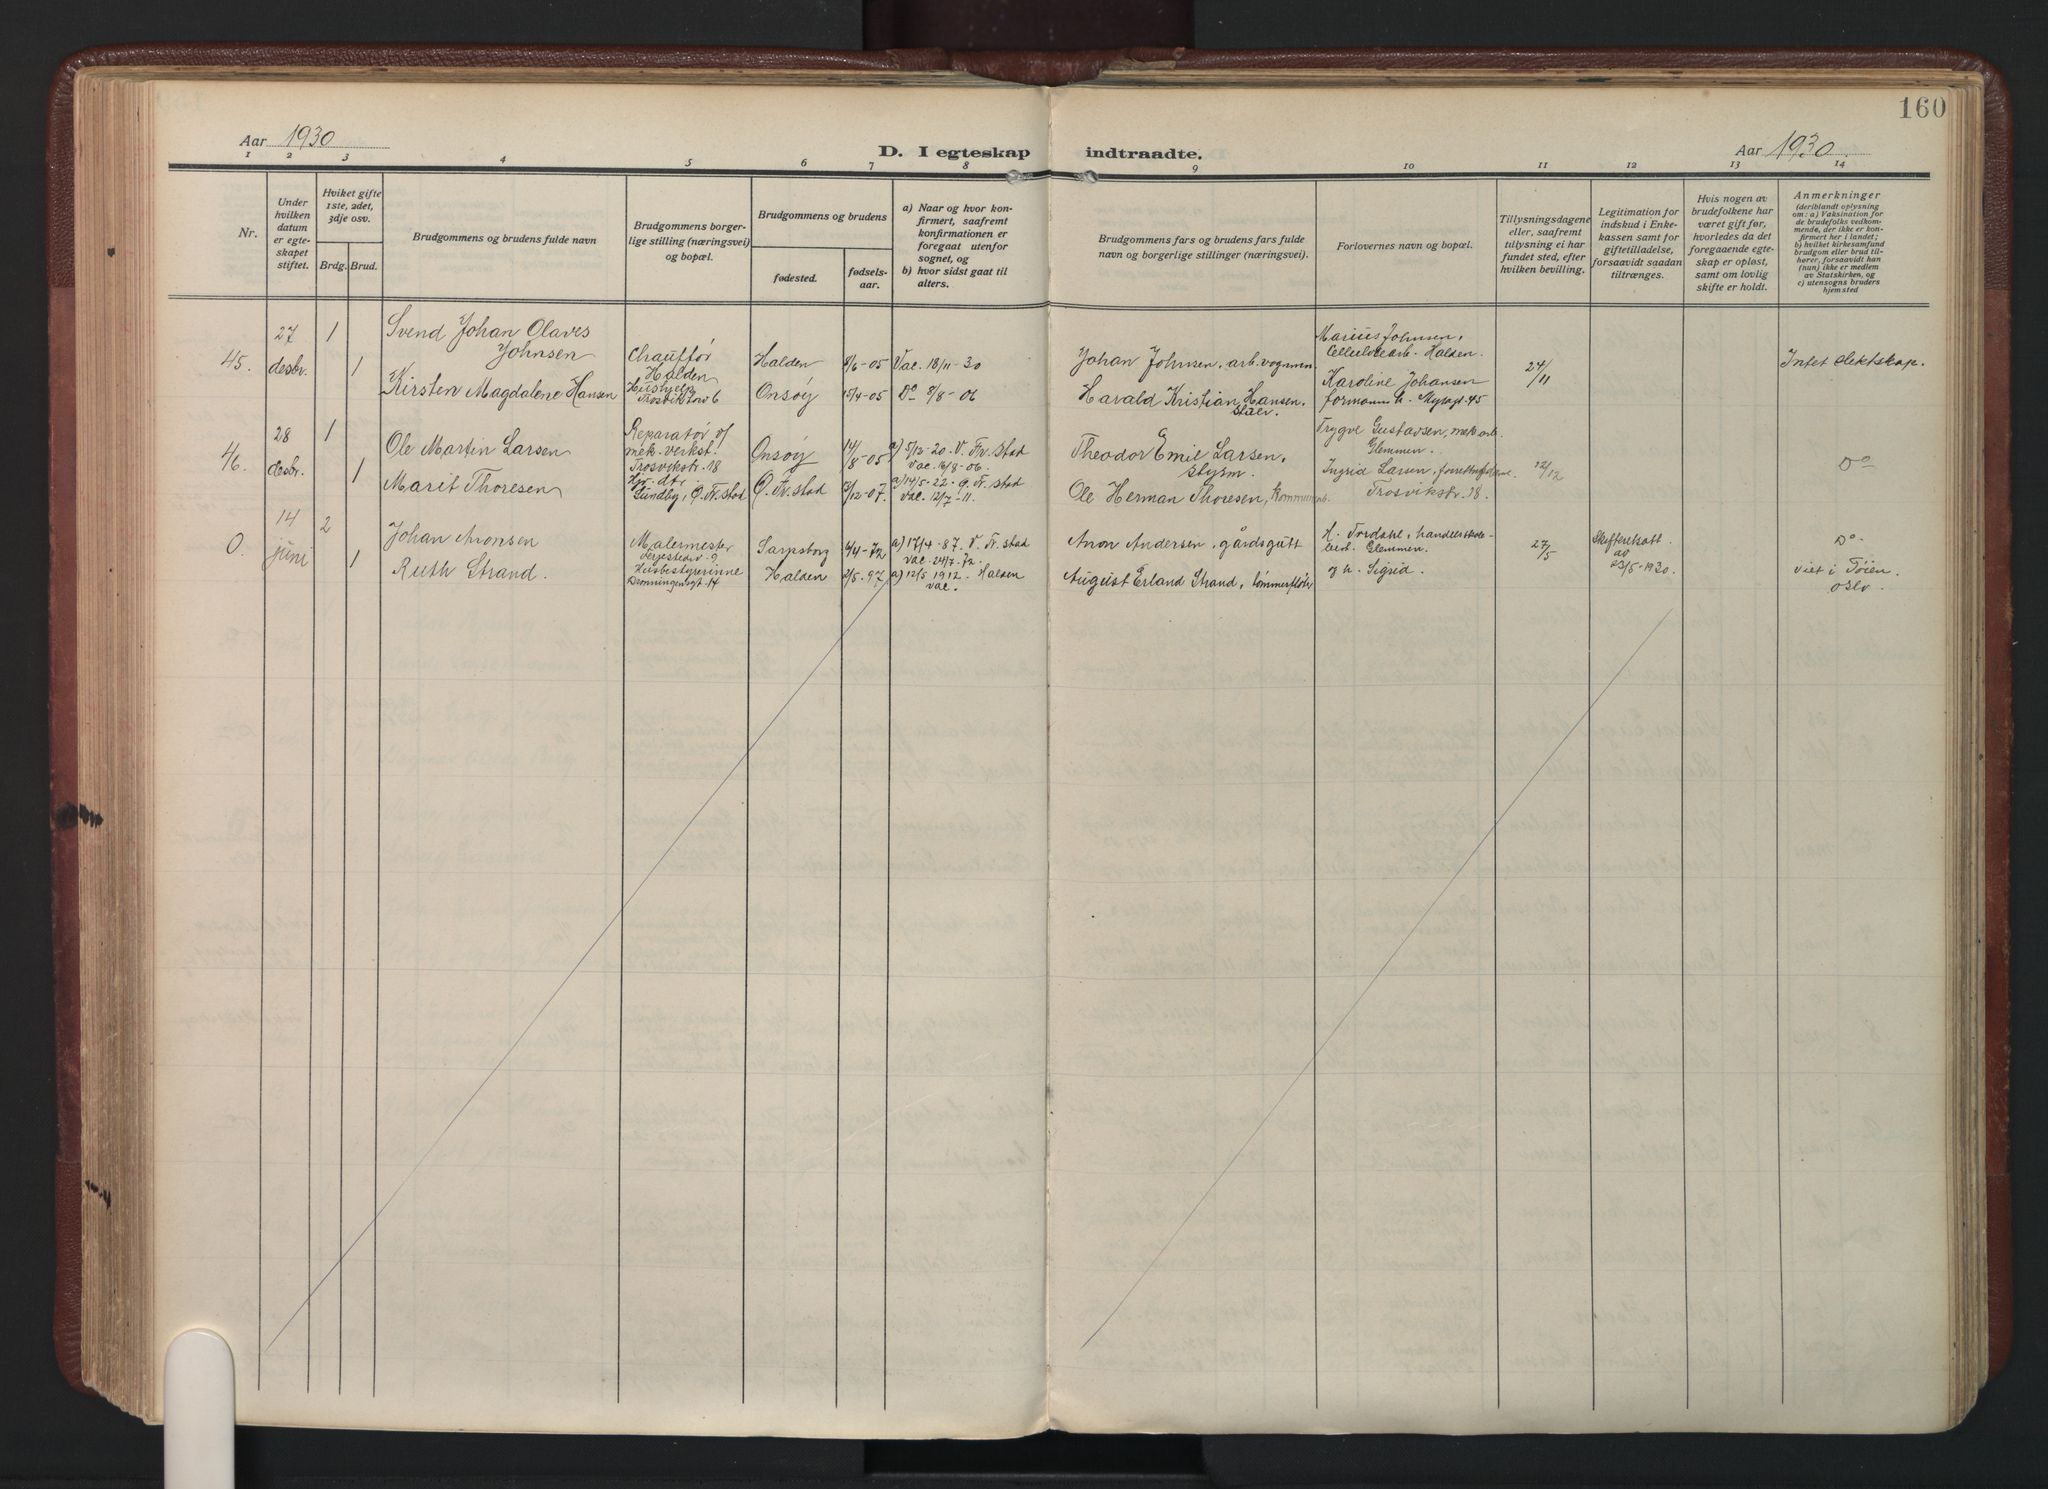 160
Aar 1930
D. I egteskap indtraadte.
Aar 1930.
1 2 3 4 5 6 7 8 9 10 11 12 13 14
Nr.
Under hvilken datum er egteskapet stiftet.
Hviket gifte 1ste, 2det, 3dje osv.
Brdg. Brud.
Brudgommens og brudens fulde navn
Brudgommens borgerlige stilling (næringsvei) og bopæl.
Brudgommens og brudens
fødested.
fødselsaar.
a) Naar og hvor konfirmert, saafremt konfirmationen er foregaat utenfor sognet, og
b) hvor sidst gaat til alters.
Brudgommens fars og brudens fars fulde navn og borgerlige stillinger (næringsvei).
Forlovernes navn og bopæl.
Tillysningsdagene eller, saafremt tillysning ei har fundet sted, efter hvilken bevilling.
Legitimation for indskud i Enkekassen samt for giftetilladelse, forsaavidt saadan tiltrænges.
Hvis nogen av brudefolkene har været gift før, hvorledes da det foregaaende egteskap er opløst, samt om lovlig skifte er holdt.
Anmerkninger (deriblandt oplysning om: a) Vaksination for de brudefolks vedkommende, der ikke er konfirmert her i landet; b) hvilket kirkesamfund brudgom eller brud tilhører, forsaavidt han (hun) ikke er medlem av Statskirken, og c) utensogns bruders hjemsted
45. 27 desbr. 1
Svend Johan Olaves Johnsen
Chauffør Halden
Halden
8/6-05
Vac. 18/11-30
Johan Johnsen, arb. vognmn.
Marius Johnsen, Cellulosearb. Halden.
24/11
Intet slektskap.
1
Kirsten Magdalene Hansen
Hushjelp Trosvikstov 6
Onsøy
15/4-05
Do 8/8-06
Harald Kristian Hansen.
Karoline Johansen
46. 28 desbr. 1
Ole Martin Larsen
Reparatør v/ mek. verkst. Trosvikstr. 18
Onsøy
14/8-05
a) 5/12-20. V. Fr.stad Vac. 16/8-06.
Theodor Emil Larsen,
Trygve Gustavsen, mek arb. Glemmen.
12/12
Do
1
Marit Thoresen
Hjv. dtr. Lundby, Ø. Fr.stad
Ø. Fr.stad
13/12-07.
a) 14/5-22. Ø. Fr.stad Vac. 12/7-11.
Ole Herman Thoresen,
Ingrid Larsen,
Trosvikstr. 18.
0. 14 juni 2
Johan Aronsen
Malermester
Sarpsborg
4/4-72
a) 17/4-87. V. Fr.stad Vac. 24/7-72
Aron Andersen, gårdsgutt
H. Tordahl,
Glemmen.
27/5
Skifteattatt av 23/5-1930.
Do.
1
Ruth Strand.
Husbestyrerinne Dronningensgt. 14
Halden
2/5. 97
a) 12/5 1912. Halden Vac.
August Erland Strand, tømmerfløter
og h. Sigrid.
viet i Tøien Oslo.